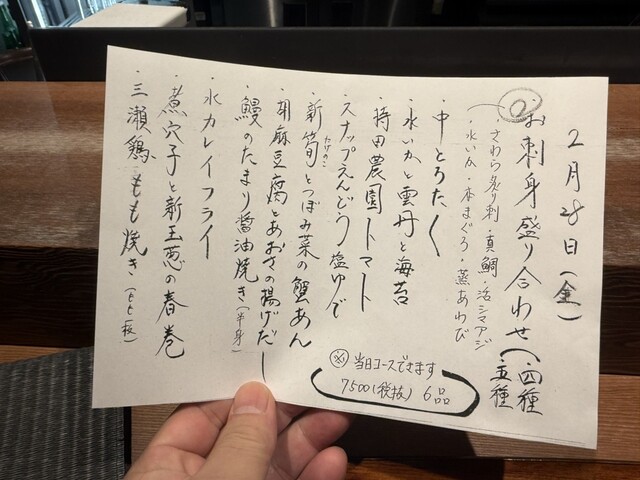 2月28日(金)
お刺身盛り合わせ(・四種・五種
さわら炙り刺・真鯛・活シマアジ
・水いか・本まぐろ・蒸あわび
・中とろたく
・水いかと雲丹と海苔
・持田農園トマト
・スナップえんどう塩ゆで
・新筍とつぼみ菜の蟹あん
たけのこ
・胡麻豆腐とあおさの揚げだし
・鰻のたまり醤油焼き(半身)
・水カレイフライ
・煮穴子と新玉葱の春巻
・三瀬鶏もも焼き(もも一枚)
※当日コースできます
7500(税抜) 6品